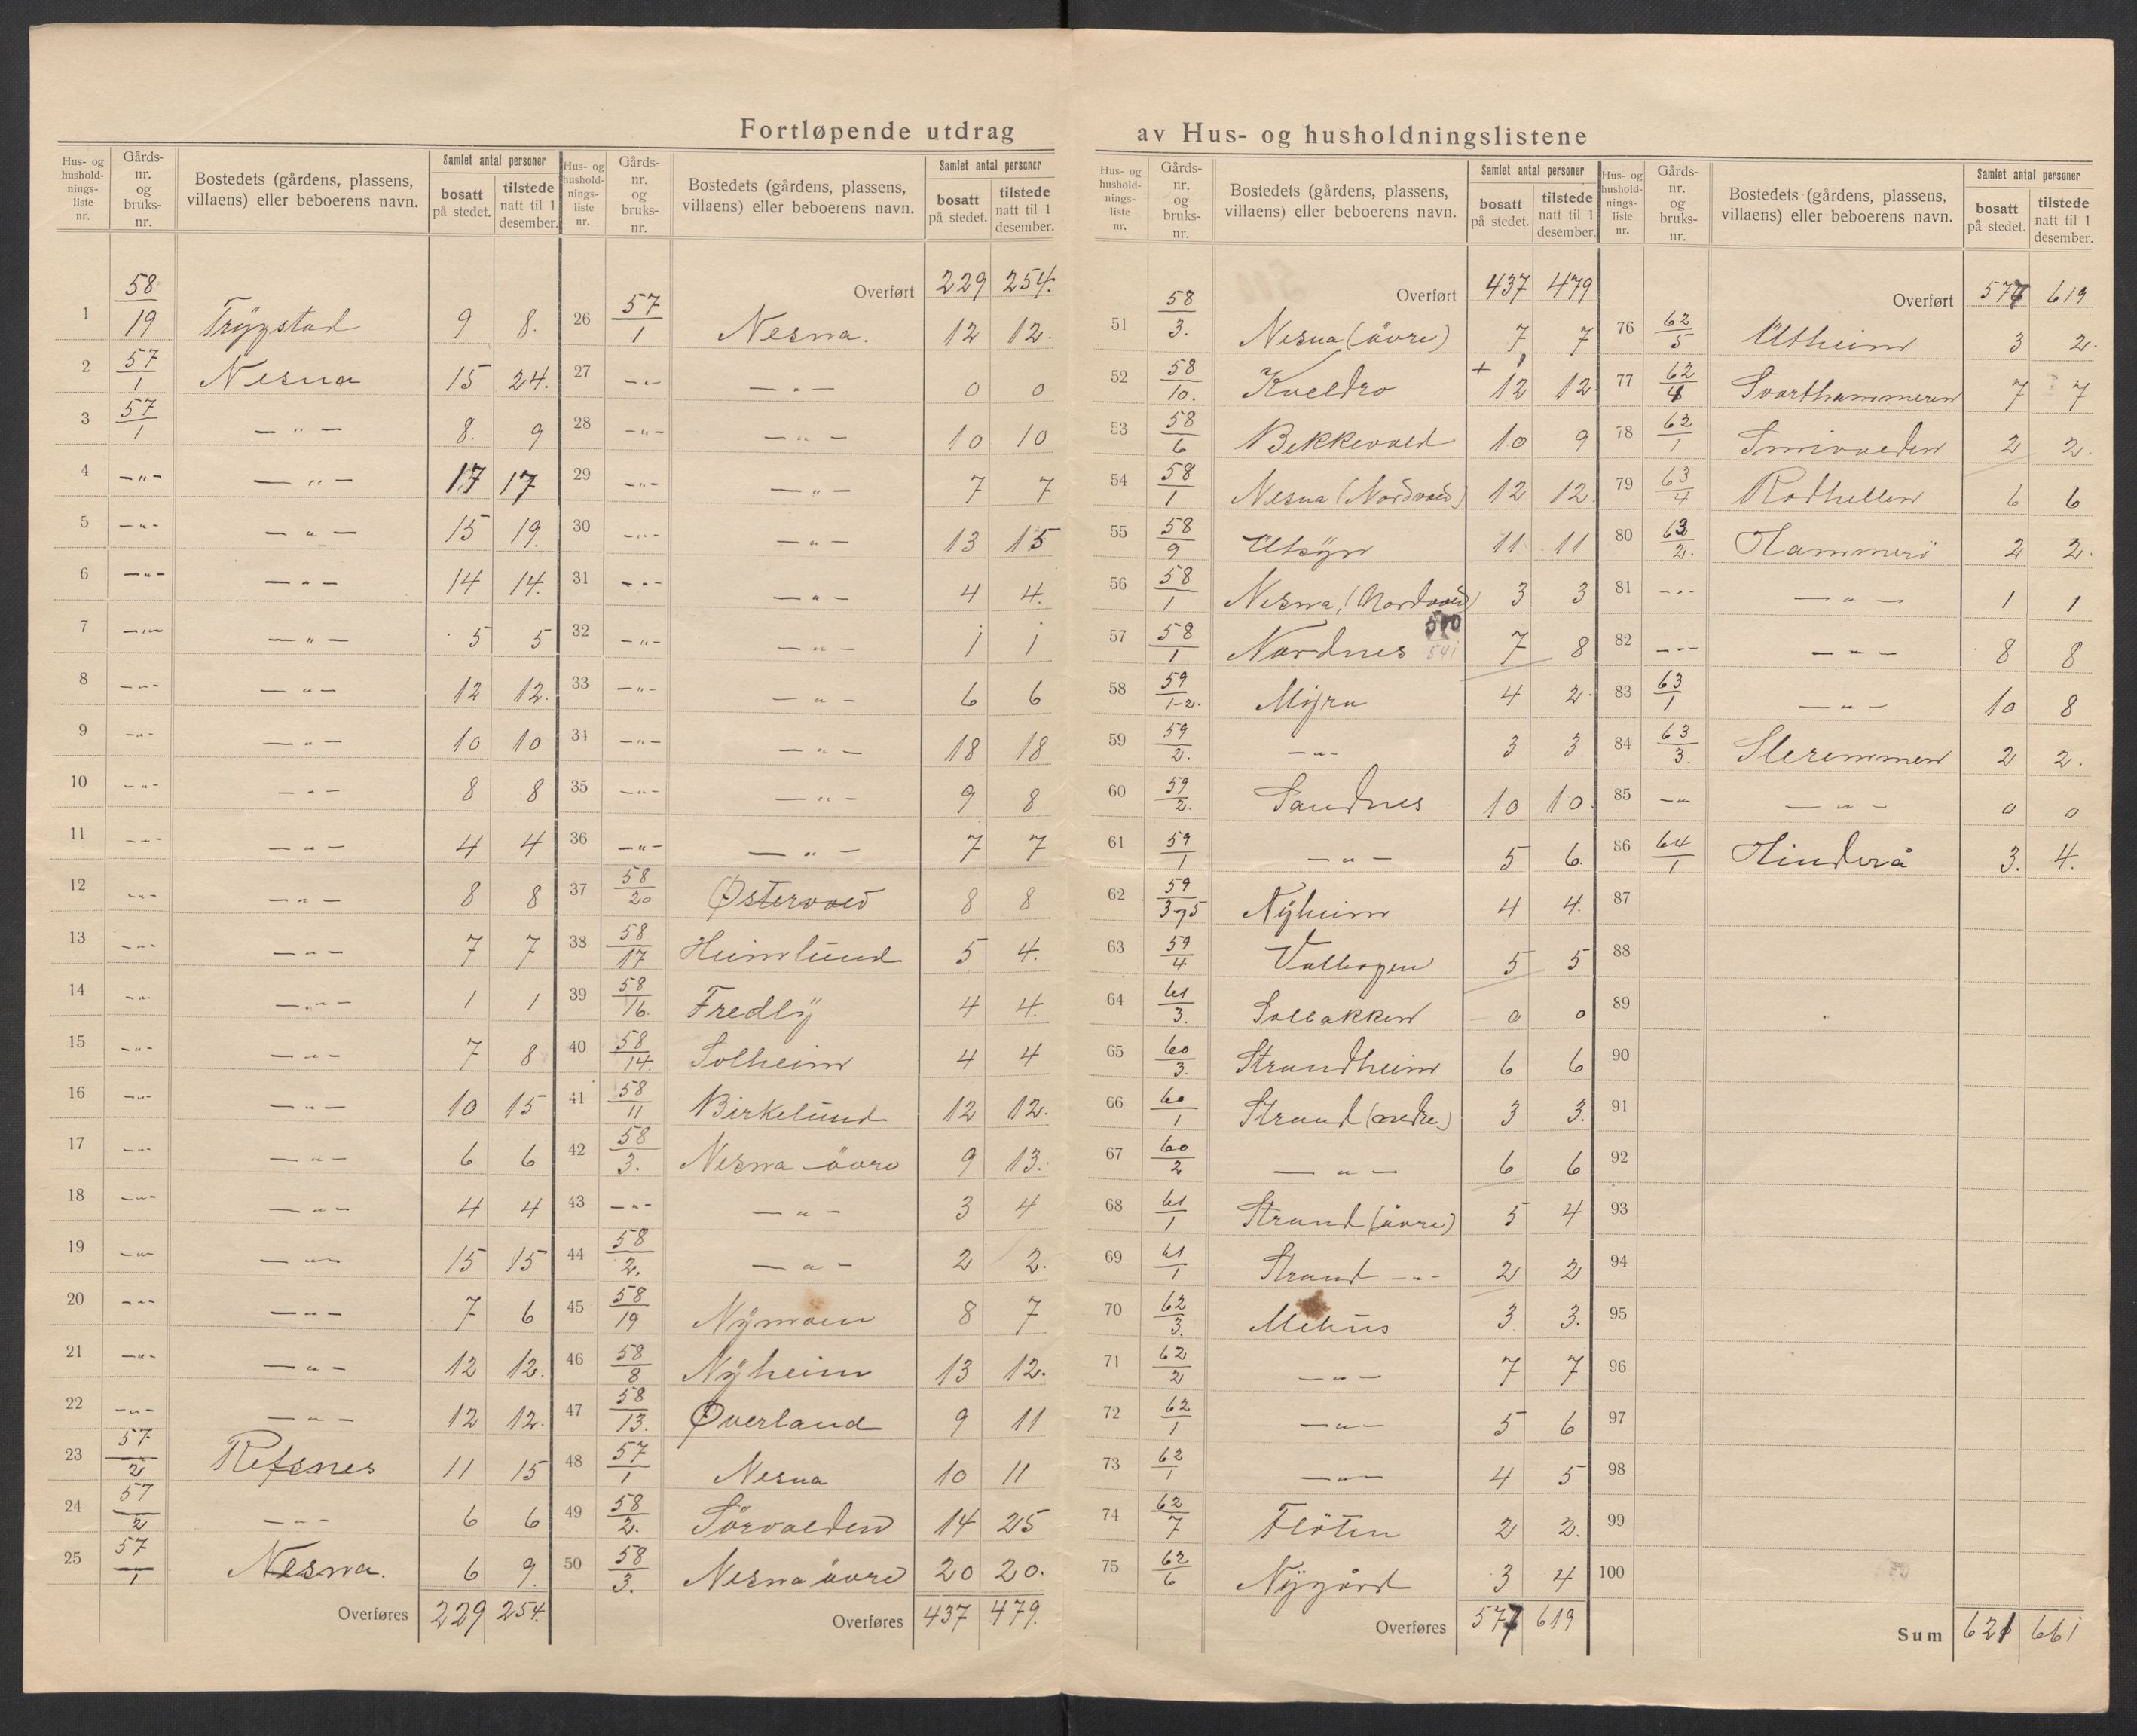 Fortløpende utdrag av Hus- og husholdningslistene
Hus- og husholdnings-liste nr. | Gårds-nr. og bruks-nr. | Bostedets (gårdens, plassens, villaens) eller beboerens navn. | Samlet antal personer bosatt på stedet. | tilstede natt til 1 desember.
1 58/19 Trygstad 9 8.
2 57/1 Nesna 15 24.
3 57/1 —"— 8. 9
4 —"— —"— 17 17
5 —"— —"— 15 19
6 —"— —"— 14 14.
7 —"— —"— 5 5
8 —"— —"— 12 12.
9 —"— —"— 10 10
10 —"— —"— 8 8
11 —"— —"— 4 4
12 —"— —"— 8 8
13 —"— —"— 7 7
14 —"— —"— 1 1
15 —"— —"— 7 8
16 —"— —"— 10 15
17 —"— —"— 6 6
18 —"— —"— 4 4
19 —"— —"— 15 15
20 —"— —"— 7 6
21 —"— —"— 12 12.
22 —"— —"— 12 12.
23 57/2 Refsnes 11 15
24 57/2 —"— 6 6
25 57/1 Nesna. 6 9.
Overføres 229 254.
Hus- og husholdnings-liste nr. | Gårds-nr. og bruks-nr. | Bostedets (gårdens, plassens, villaens) eller beboerens navn. | Samlet antal personer bosatt på stedet. | tilstede natt til 1 desember.
Overført 229 254.
26 57/1 Nesna. 12 12.
27 —"— —"— 0 0
28 —"— —"— 10 10
29 —"— —"— 7 7
30 —"— —"— 13 15
31 —"— —"— 4 4.
32 —"— —"— 1 1
33 —"— —"— 6 6
34 —"— —"— 18 18
35 —"— —"— 9 8
36 —"— —"— 7 7
37 58/20 Østervold 8 8
38 58/17 Heimlund 5 4.
39 58/16. Fredly 4 4.
40 58/14. Solheim 4 4
41 58/11 Birkelund 12 12.
42 58/3. Nesna övre 9 13.
43 —"— —"— 3 4
44 58/2. —"— 2 2.
45 58/19 Nymoen 8 7
46 58/8 Nyheim 13 12.
47 58/13. Øverland 9 11
48 57/1 Nesna 10 11
49 58/2. Sörvolden 14 25
50 58/3. Nesna övre 20 20.
Overføres 437 479.
Hus- og husholdnings-liste nr. | Gårds-nr. og bruks-nr. | Bostedets (gårdens, plassens, villaens) eller beboerens navn. | Samlet antal personer bosatt på stedet. | tilstede natt til 1 desember.
Overført 437 479
51 58/3. Nesna (övre) 7 7
52 58/10. Kveldro + 12 12
53 58/6 Bekkevold 10 9
54 58/1 Nesna (Nordvold) 12 12.
55 58/9 Utsyn 11 11
56 58/1 Nesna, (Nordvold) 3 3
57 58/1 Nordnes 541 7 8
58 59/1-2. Myra 4 2.
59 59/2. —"— 3 3
60 59/2. Sandnes 10 10
61 59/1 —"— 5 6.
62 59/3 og 5 Nyheim 4 4.
63 59/4 Valhogen 5 5
64 61/3. Solbakken 0 0
65 60/3. Strandheim 6 6
66 60/1 Strand (nedre) 3 3.
67 60/2 —"— 6 6
68 61/1 Strand (övre) 5 4
69 61/1 Strand —"— 2 2
70 62/3. Mehus 3 3.
71 62/2 —"— 7 7
72 62/1 —"— 5 6
73 62/1 —"— 4 5
74 62/7 Flöten 2 2.
75 62/6 Nygård 3 4
Overføres 577 619
Hus- og husholdnings-liste nr. | Gårds-nr. og bruks-nr. | Bostedets (gårdens, plassens, villaens) eller beboerens navn. | Samlet antal personer bosatt på stedet. | tilstede natt til 1 desember.
Overført 577 619
76 62/5 Utheim 3 2.
77 62/4 Svarthammeren 7 7
78 62/1 Smivolden 2 2.
79 63/4 Rodhellen 6 6
80 63/2. Hammerö 2 2.
81 —"— —"— 1 1
82 —"— —"— 8 8
83 63/1 —"— 10 8
84 63/3. Steremmen 2 2.
85 —"— —"— 0 0
86 64/1 Hinderå 3. 4.
87
88
89
90
91
92
93
94
95
96
97
98
99
100
Sum 621 661